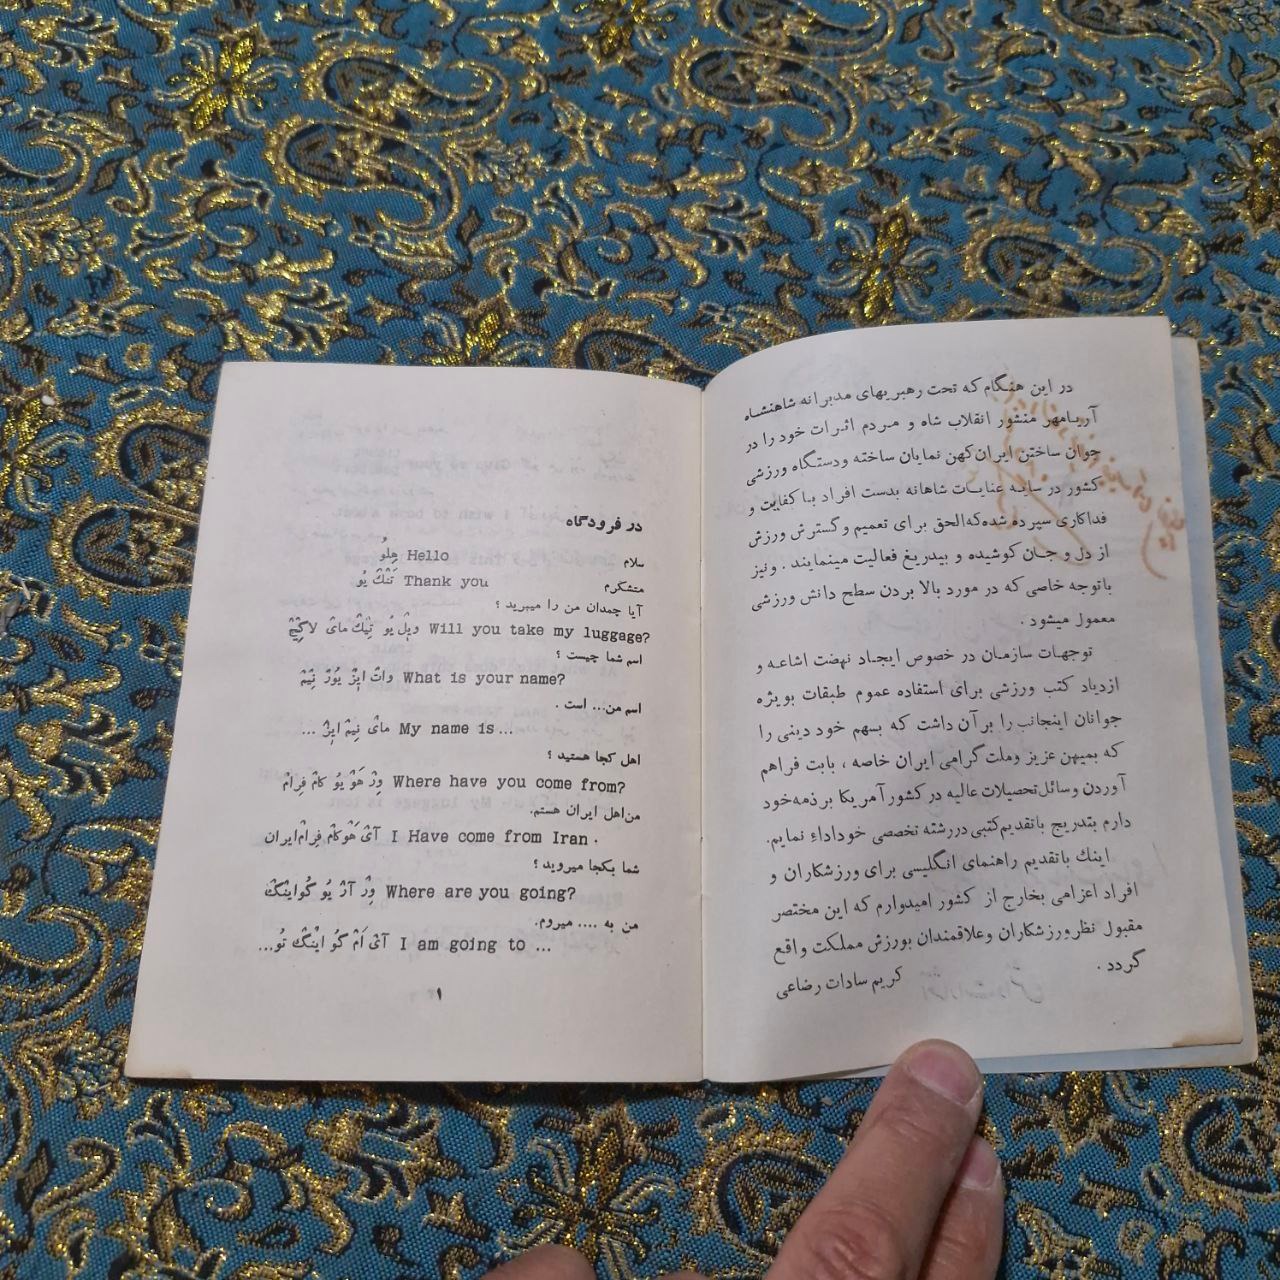 در این هنگام که تحت رهبریهای مدبرانه شاهنشاه
آریامهر منشور انقلاب شاه و مردم اثرات خود را در
جوان ساختن ایران کهن نمایان ساخته و دستگاه ورزشی
کشور در سایه عنایات شاهانه بدست افراد با کفایت و
فداکاری سپرده شده که الحق برای تعمیم و گسترش ورزش
از دل و جان کوشیده و بیدریغ فعالیت مینمایند . و نیز
باتوجه خاصی که در مورد بالا بردن سطح دانش ورزشی
معمول میشود .
توجهات سازمان در خصوص ایجاد نهضت اشاعه و
ازدیاد کتب ورزشی برای استفاده عموم طبقات بویژه
جوانان اینجانب را برآن داشت که بسهم خود دینی را
که بمیهن عزیز وملت گرامی ایران خاصه ، بابت فراهم
آوردن وسائل تحصیلات عالیه در کشور آمریکا برذمه خود
دارم بتدریج باتقدیم کتبی دررشته تخصصی خود اداء نمایم.
اینك باتقدیم راهنمای انگلیسی برای ورزشکاران و
افراد اعزامی بخارج از کشور امیدوارم که این مختصر
مقبول نظر ورزشکاران و علاقمندان بورزش مملکت واقع
گردد .
کریم سادات رضاعی
در فرودگاه
سلام Hello هِلوُ
متشکرم Thank you تَنْكْ یُو
آیا چمدان من را میبرید ؟
Will you take my luggage? ویٖل یُو تِیْكْ مایْ لاگِیْجْ
اسم شما چیست ؟
What is your name? واتْ ایٖزْ یُوُرْ نِیْمْ
اسم من... است .
My name is... مایْ نِیمْ ایٖزْ ...
اهل کجا هستید ؟
Where have you come from? وِرْ هَوْ یوُ کامْ فِرامْ
من اهل ایران هستم.
I Have come from Iran . آیْ هَوْ کامْ فِرامْ ایران
شما بکجا میروید ؟
Where are you going? وِرْ آرْ یُو گُواینْگْ
من به .... میروم.
I am going to ... آیْ اَمْ گُو اینْگْ تُو...
۱